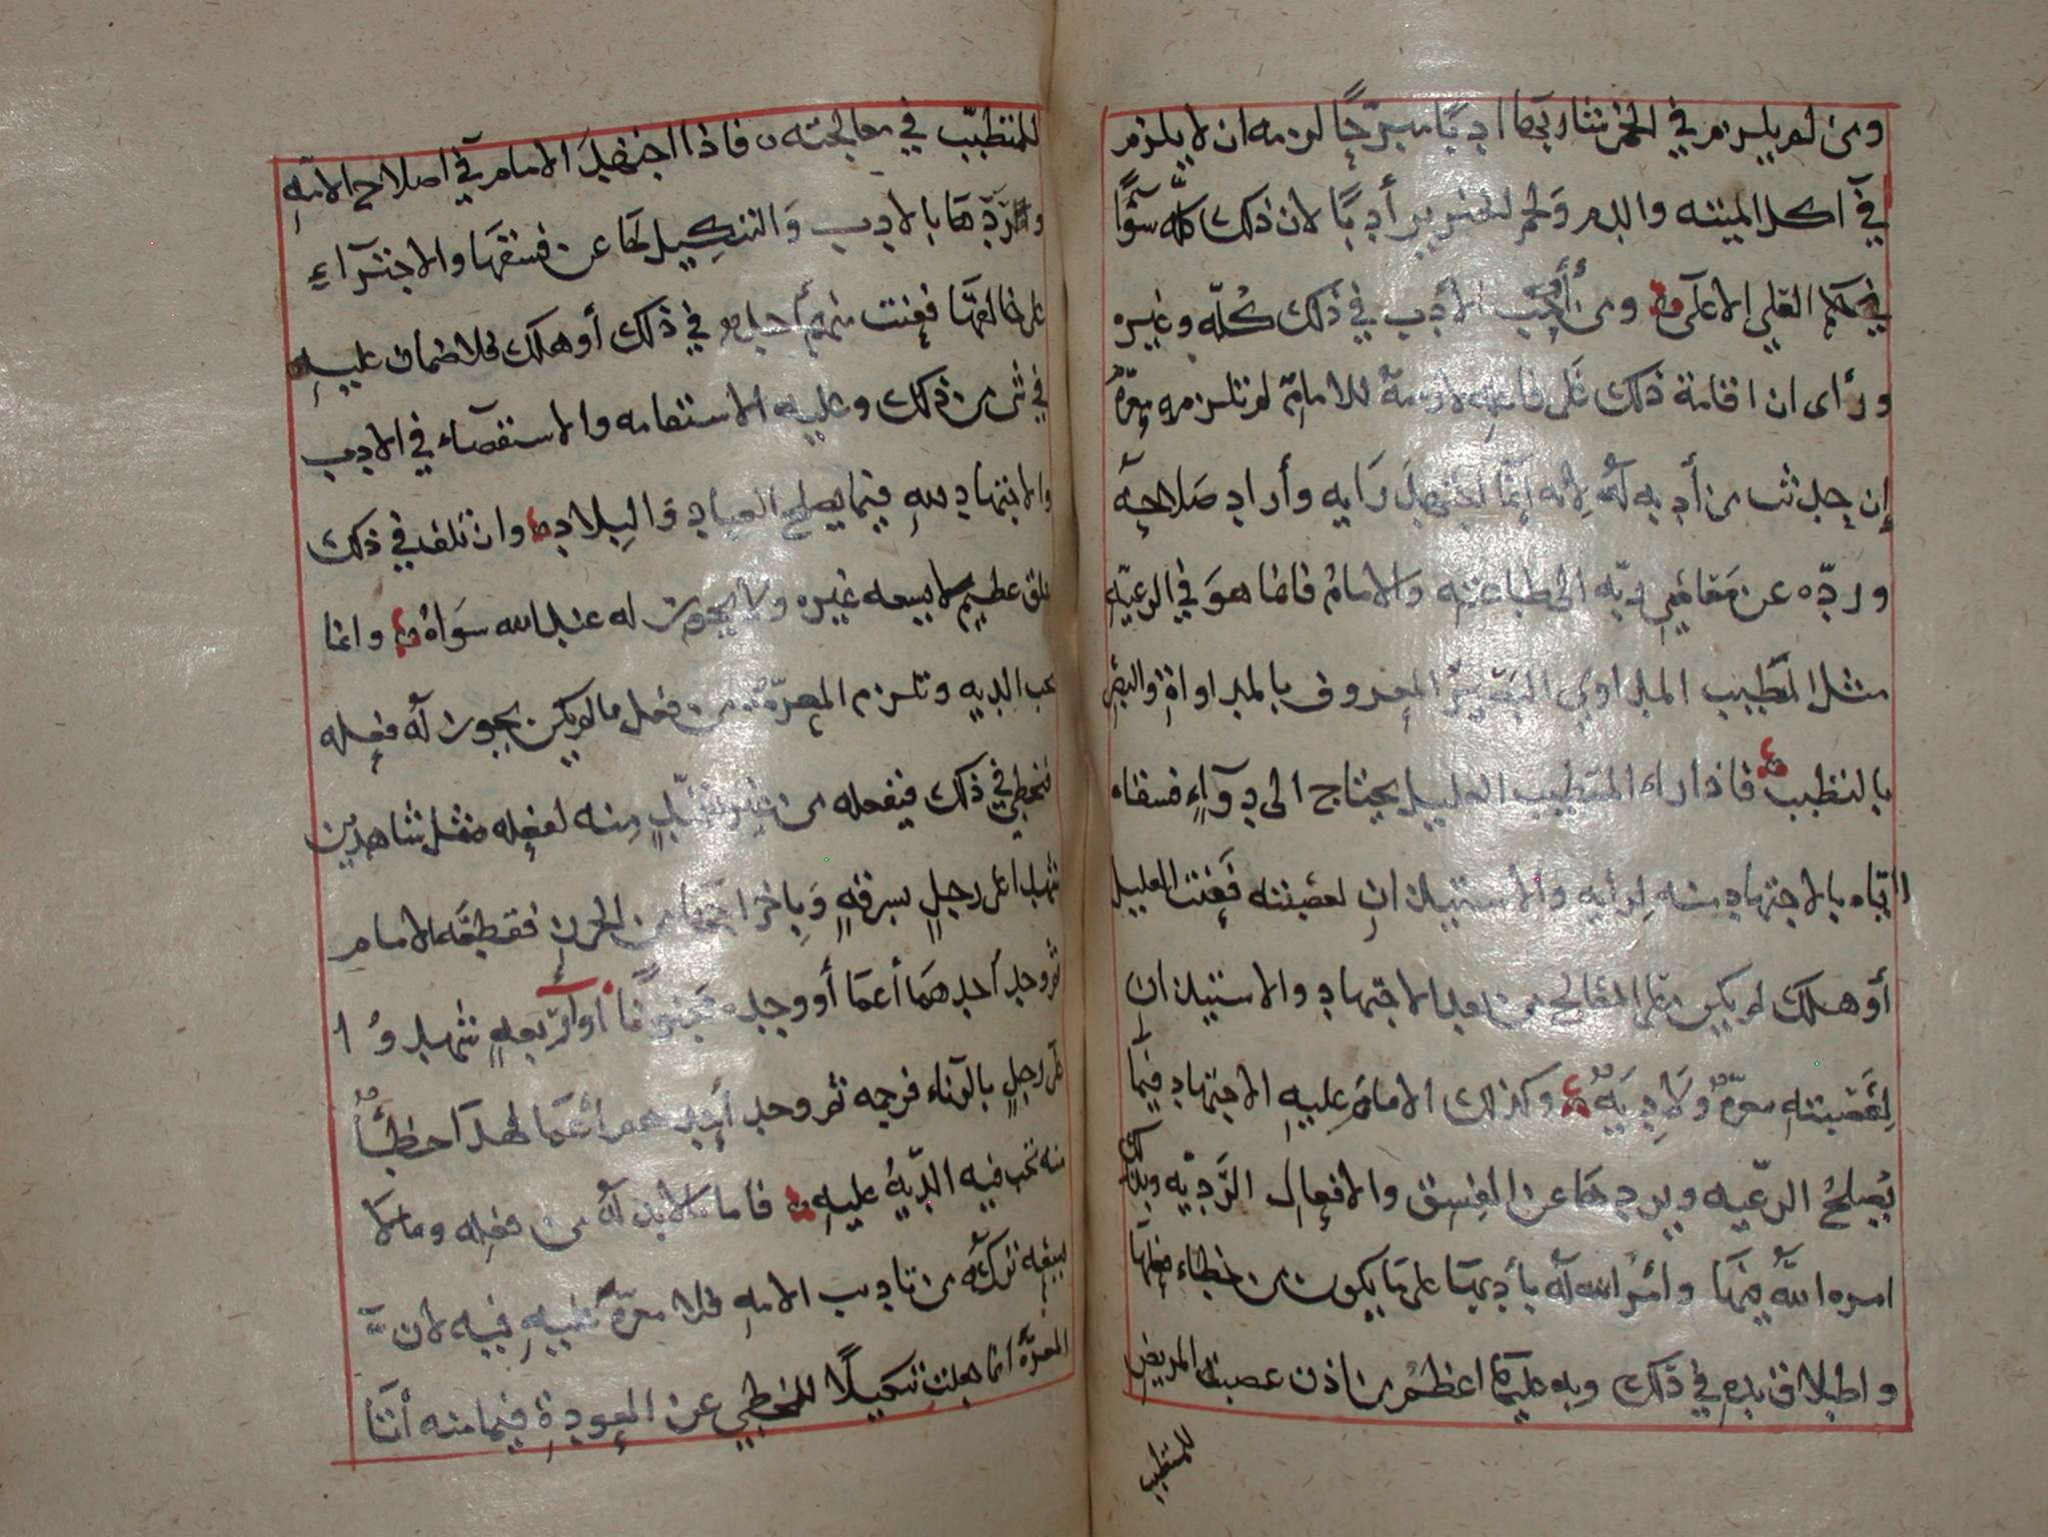 ومن لم يلزم في الخمر شاربها ادبًا مبرّحًا لزمه ان لا يلزم
في اكل الميته والدم ولحم الخنزير أدبًا لان ذلك كلّه سَوًآ
في حكم العلي الاعلى ومن أوجب الأدب في ذلك كُلّه وغيره
ورأى ان اقامة ذلك على فاعله لازمةٌ للامام لم تلزمه معرّةٌ
إن حدث من أدبه لَهُ لأنه إنما اجتهد رَايه وأراد صَلاحه
وردّه عن مَعَاصي ربّه الى طاعته وَالامامُ فانما هوَ في الرعيّه
مثل الطّبيب المداوي البَصِيرُ المعروف بالمداواةِ والبصر
بالتطبب فاذا راء المتطبب العليل يحتاج الى دوآءٍ فسقاه
اياه بالاجتهاد منه لرأيه والاستيذان لعصبته فَعنت العليل
أو هلك لم يكن على المعالج من بعد الاجتهاد والاستيذان
لِعَصَبَتهِ معرّةٌ ولا دِيَةٌ وكذلك الامامُ عليهِ الاجتهاد فيما
يُصلحُ الرعّيه ويردها عن الفسق والافعال الرَّديّه وبذلك
امره اللَّهُ فيهَا وأمرُ اللّه لَه بأدبهَا على مَا يكون من خطاء فعلها
واطلاق يده في ذلك وبه عليها اعظم من اذن عصبة المريض
للمتطبب
للمتطبّب في معالجته فاذا اجتهدَ الامام في اصلاح الامّهِ
وردّها بالادب وَالتنكِيل لها عن فسقهَا والاجتِرَآءِ
على خالقهَا فعنت منهم أحدٌ في ذلك أو هلك فلا ضمان عليهِ
في شي من ذلك وعليه الاستقامه والاستقصَآء في الادب
والاجتهاد للهِ فيما يصلح العباد وَالبلاد وان تلف في ذلك
خلق عظيم لا يسعه غيره ولا يجوز له عند الله سوَاهُ وانما
تجب الديه وتلزم المعرّةُ من فعل ما لم يكن يجوز لَه فعله
فيخطي في ذلك فيفعله من غير تثبّتٍ منه لفعله مثل شاهدين
شهدا على رجلٍ بسرقةٍ وَبإخراجها من الحرز فقطعَه الامام
ثم وجد أحدهمَا أعمَا أو وجده مجنونًا أو أربعهٍ شهدوُا
على رجلٍ بالزناء فرجمه ثم وجد أحدهم أعمَا فهذا خطأٌ
منه تجب فيه الديّةُ عليهِ فاما ما لا بد لَهُ من فعله وما لا
يسعه تركُه من تاديب الامهِ فلا معرّةَ عليهِ فيه لان
المعرّةَ انما جعلت تنكيلًا للمخطي عن العودةِ فيما منه أتَا